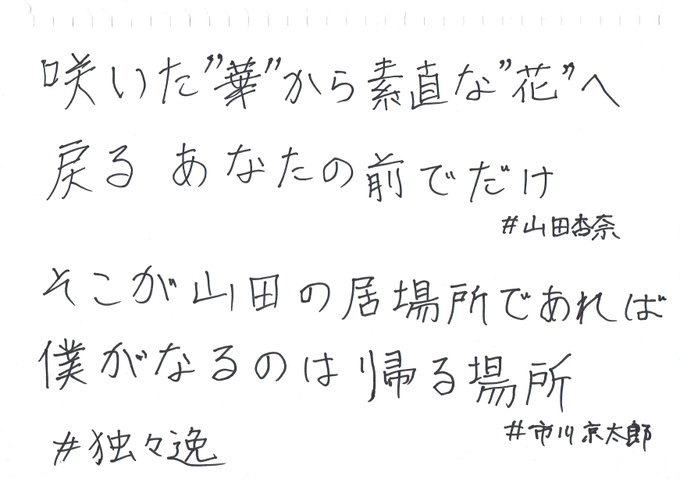 咲いた”華”から素直な”花”へ
戻る あなたの前でだけ
#山田杏奈
そこが山田の居場所であれば
僕がなるのは帰る場所
#市川京太郎
#独々逸